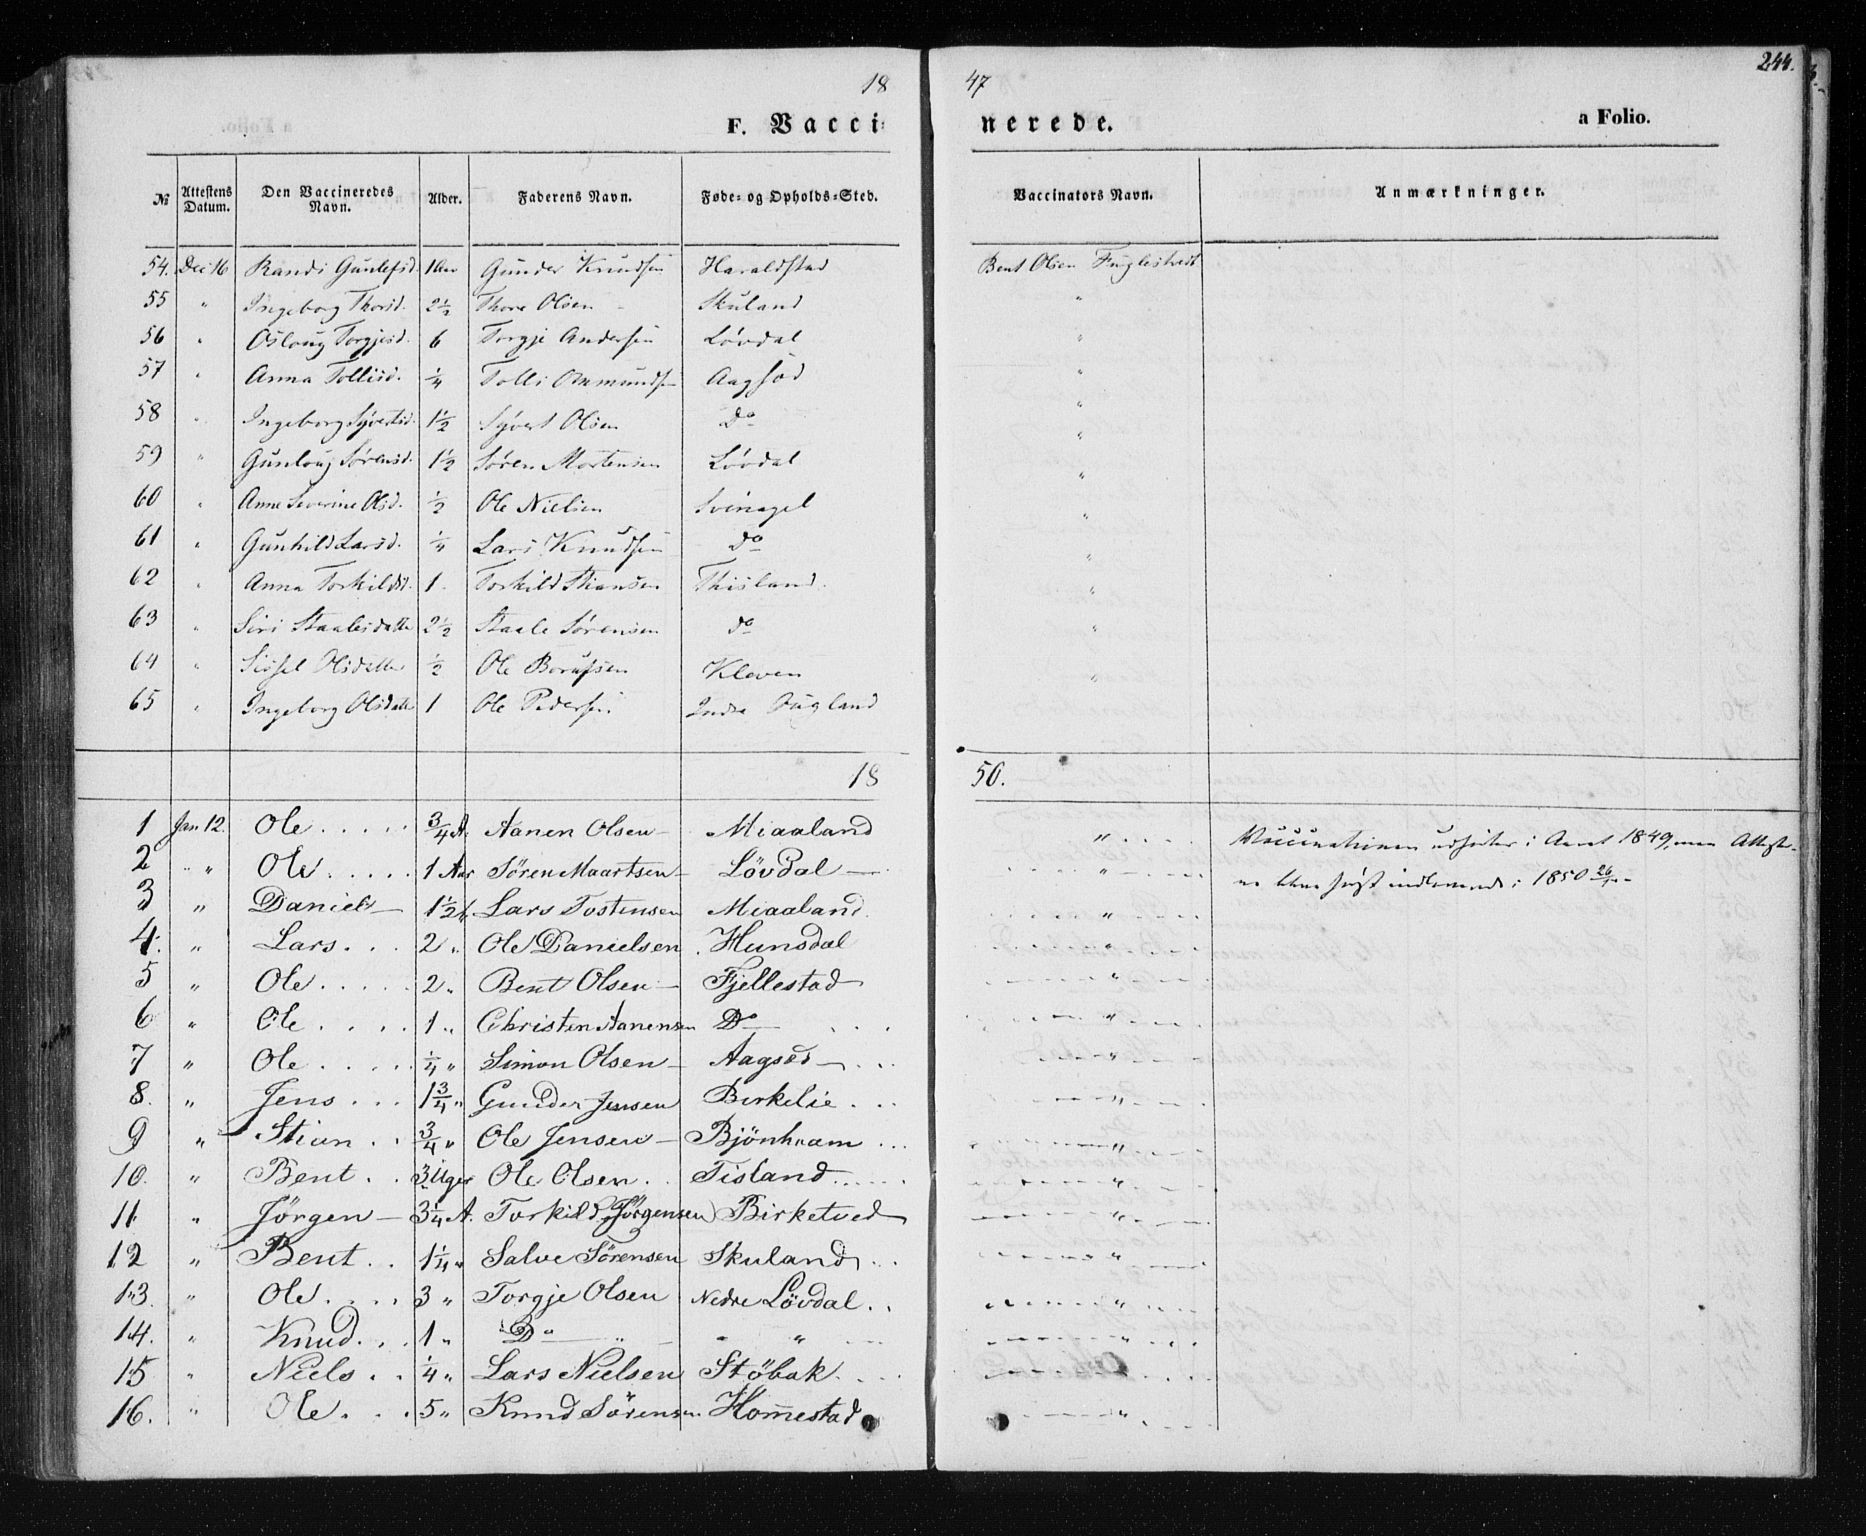 244.
18 47
F. Vacci= nerede. a Folio.
№ Attestens Datum. Den Vaccineredes Navn. Alder. Faderens Navn. Føde- og Opholds-Sted. Vaccinators Navn. Anmærkninger.
54. Dec 16 Randi Gunlefsd. 1 Aar Gunder Knudsen Haraldstad Bent Olsen Fuglestvedt
55 " Ingeborg Thorsd. 2½ Thore Olsen Skuland "
56 " Osloug Torgjesd. 6 Torgje Andersen Lövdal "
57 " Anna Tollisd. ¼ Tolli Ommunds Aagsød "
58 " Ingeborg Syvertsd. 1½ Syvert Olsen Do "
59 " Gunloug Sørensd. 1½ Søren Mortensen Lövdal "
60 " Anne Severine Olsd. ½ Ole Nielsen Svinagel "
61 " Gunhild Larsd. ¼ Lars Knudsen do "
62 " Anna Torkildsd. 1 Torkild Stiansen Thisland "
63 " Siri Staalesdatter 2½ Staale Sørensen do "
64 " Sissel Olsdatter ½ Ole Kleven "
65 " Ingeborg Olsdatter 1 Ole Pedersen Indre Øügland
18 50.
1 Jan 12. Ole ¾ A. Aanen Olsen Miaaland " Vaccinationen udført i Aaret 1849, men Atteste-
2 " Ole 1 Aar Sören Maartsen Lövdal " først 1850 26/
3 " Daniel 1½ A. Lars Tostensen Miaaland "
4. " Lars 2 " Ole Danielsen Hunsdal "
5 " Ole 2 " Bent Olsen Fjellestad "
6 " Ole 1 " Christen Aanensen Do "
7 " Ole ¼ " Simon Olsen Aagsød "
8. " Jens 1¾ " Gunder Jensen Birkelie "
9 " Stian ¾ " Ole Jensen Bjönhaam "
10. " Bent 3 Uger Ole Olsen Tisland "
11 " Jörgen 3¼ A. Torkild Jörgensen Birketved "
12 " Bent 1¼ " Salve Sörensen Skuland "
13. " Ole 3 " Torgje Olsen Nedre Lövdal "
14. " Knud 1 " Do " " "
15 " Niels ¼ " Lars Nielsen Stöbak "
16. " Ole 5 " Knud Sörensen Homestad "